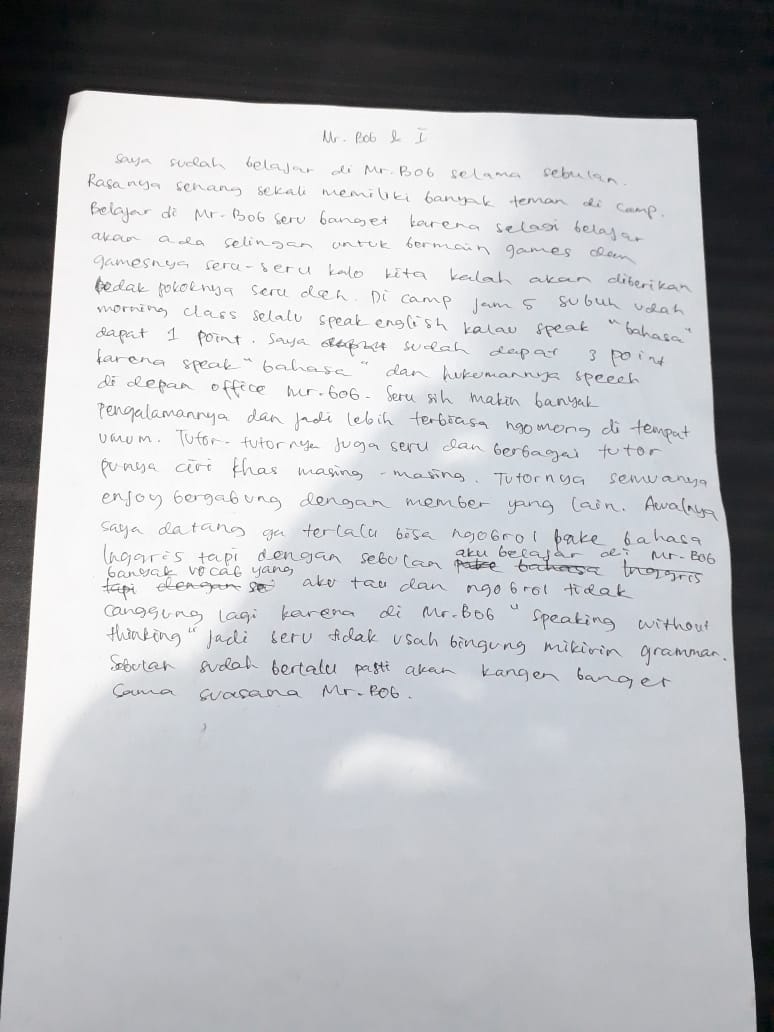 Mr. Bob & I
Saya sudah belajar di Mr. BOB selama sebulan.
Rasanya senang sekali memiliki banyak teman di camp.
Belajar di Mr. BOB seru banget karena selagi belajar
akan ada selingan untuk bermain games dan
gamesnya seru-seru kalo kita kalah akan diberikan
bedak pokoknya seru deh. Di camp jam 5 subuh udah
morning class selalu speak english kalau speak "bahasa"
dapat 1 point. Saya sudah dapat 3 point
karena speak "bahasa" dan hukumannya speech
di depan office Mr. Bob. Seru sih makin banyak
pengalamannya dan jadi lebih terbiasa ngomong di tempat
umum. Tutor-tutornya juga seru dan berbagai tutor
punya ciri khas masing-masing. Tutornya semuanya
enjoy bergabung dengan member yang lain. Awalnya
saya datang ga terlalu bisa ngobrol pake bahasa
Inggris tapi dengan sebulan aku belajar di Mr. BOB
banyak vocab yang pake bahasa Inggris
tapi dengan se aku tau dan ngobrol tidak
canggung lagi karena di Mr. BOB "speaking without
thinking" jadi seru tidak usah bingung mikirin grammar.
Sebulan sudah berlalu pasti akan kangen banget
sama suasana Mr. BOB.